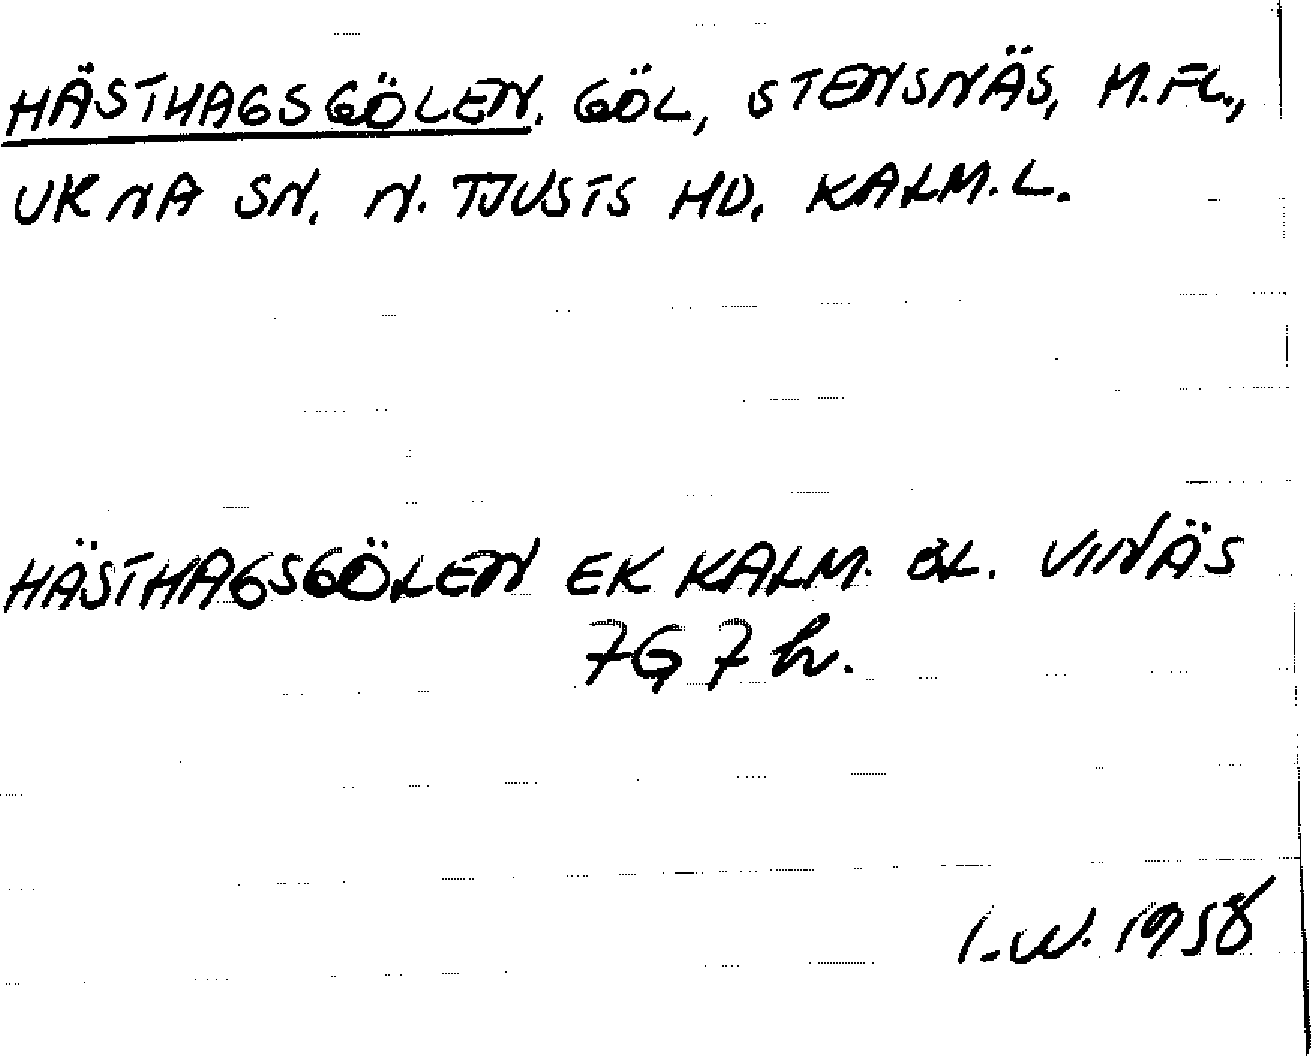 HÄSTHAGSGÖLEN. GÖL, STENSNÄS, M.FL.,
UKNA SN. N. TJUSTS HD. KALM.L.
HÄSTHAGSGÖLEN EK KALM. BL. VINÄS
7G 7h.
I.W. 1958